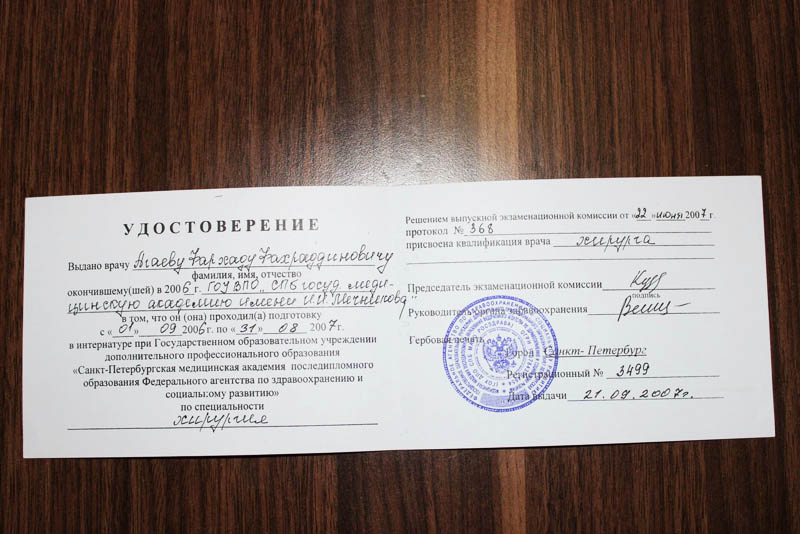 УДОСТОВЕРЕНИЕ
Выдано врачу Агаеву Фархаду Фахраддиновичу
фамилия, имя, отчество
окончившему(шей) в 2006 г. ГОУВПО „СПб госуд. меди-
цинскую академию имени И.И. Мечникова"
в том, что он (она) проходил(а) подготовку
с «01» 09 2006г. по «31» 08 2007г.
в интернатуре при Государственном образовательном учреждении
дополнительного профессионального образования
«Санкт-Петербургская медицинская академия последипломного
образования Федерального агентства по здравоохранению и
социальному развитию»
по специальности
хирургия
Решением выпускной экзаменационной комиссии от «22» июня 2007г.
протокол № 368
присвоена квалификация врача хирурга
Председатель экзаменационной комиссии
подпись
Руководитель органа здравоохранения
Гербовая печать
Город Санкт-Петербург
Регистрационный № 3499
Дата выдачи 21.09.2007г.